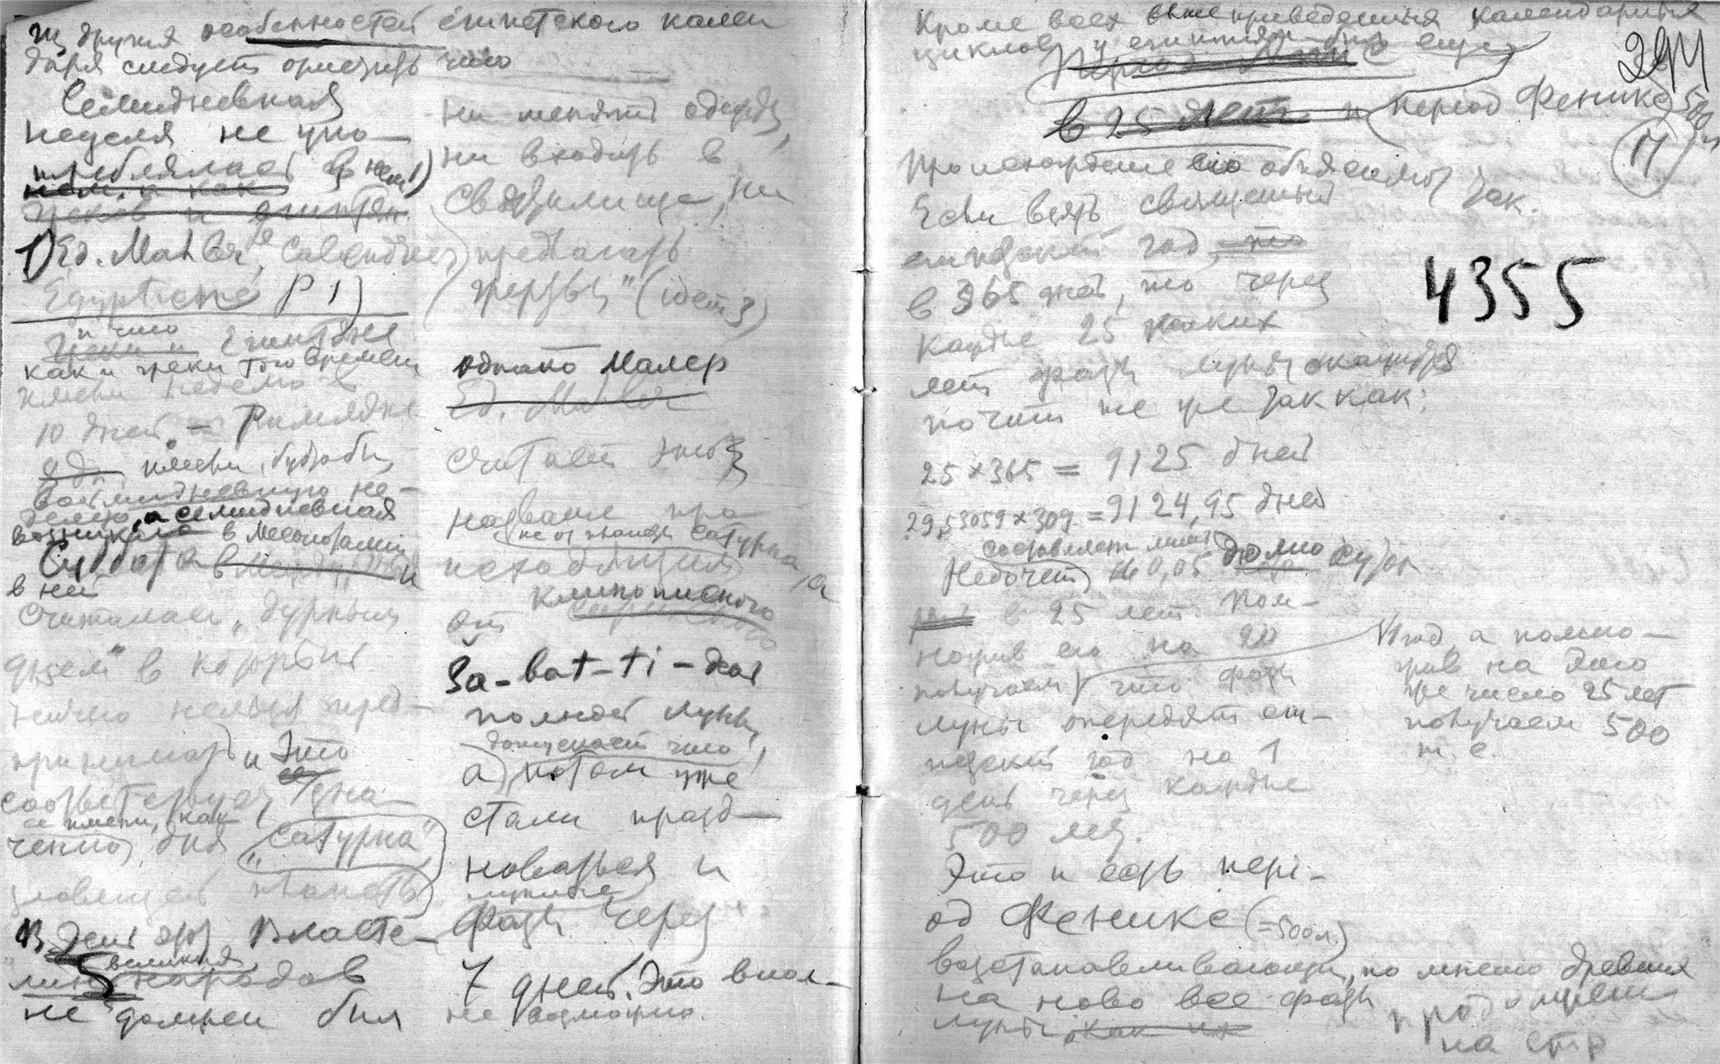 из других особенностей египетского кален
даря следует отметить что
Семидневная
неделя не упо-
треблялась в нем 1)
нем. и как
греков и египтян
1) Ed. Mahler
Egyptienne p 1)
и что
греки и Египтяне
как и греки того времени
имели неделю в
10 дней — Римляне
имели
восьмидневную не-
делю, а семидневная
возникла в Месопотамии
Суббота
в ней
считалась "дурным
днем" в который
ничего нельзя пред-
принимать и Это
соответствует
ее имени, как
дня "Сатурна",
зловещей планеты
В день этот Власте-
великих
лин народов
не должен был
ни менять одежды,
ни входить в
Святилище, ни
предлагать
жертвы" (idem 3)
однако Малер
Ed. Mahler
считает что
название про
не от планеты Сатурна, а
исходящим
клинописного
от
Sa-bat-ti - дня
полной луны,
допускает что
а потом уже
стали празд-
новаться и
фазы через
7 дней. Это впол-
не возможно.
Кроме всех вышеприведенных календарных
циклов у египтян был еще
294
в 25 лет и период Феникс 500
(17)
происхождение его объясняют так.
Если взять священный
египетский год, то
в 365 дней, то через
4355
каждые 25 таких
лет фазы луны окажутся
почти те же так как:
25 × 365 = 9125 дней
29,53059 × 309 = 9124,95 дней
составляет лишь
Недочет 0,05 долю суток
в 25 лет. Пом-
ножив его на 20
получаем что фазы
луны опередят еги-
петский год на 1
день через каждые
500 лет.
1 год, а помно-
жив на это
же число 25 лет
получаем 500
т. е.
Это и есть пери-
од Феникс (=500 л.)
восстанавливающий, по мнению древних
на ново все фазы
луны, как их
продолжение
на стр